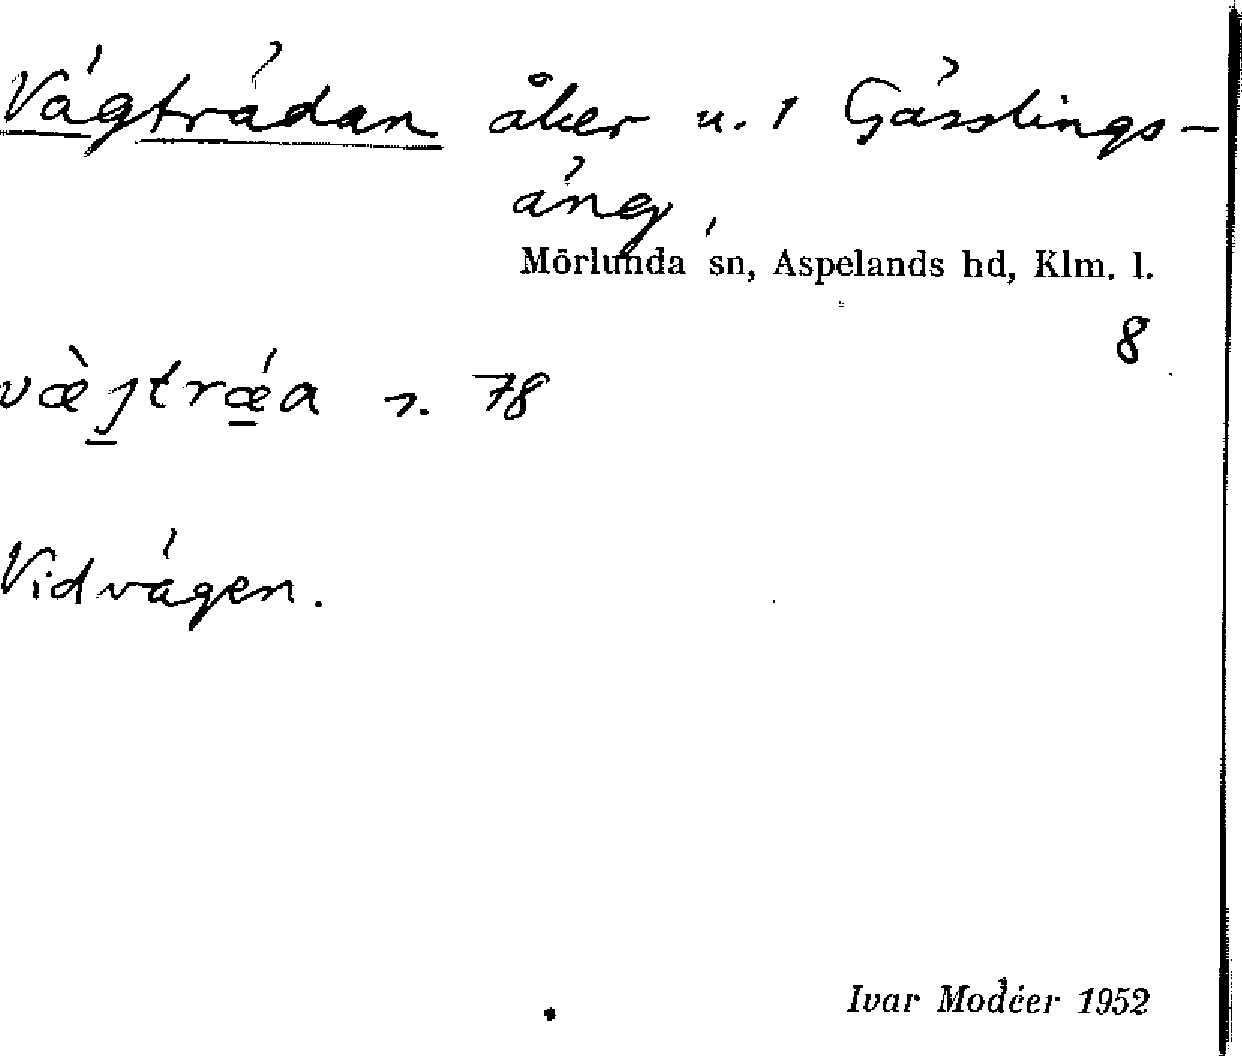 Vägträdan åker u. 1 Gässlings-
äng
Mörlunda sn, Aspelands hd, Klm. l.
8
væ̀j̱trǽ̱a s. 78
Vid vägen.
Ivar Modéer 1952